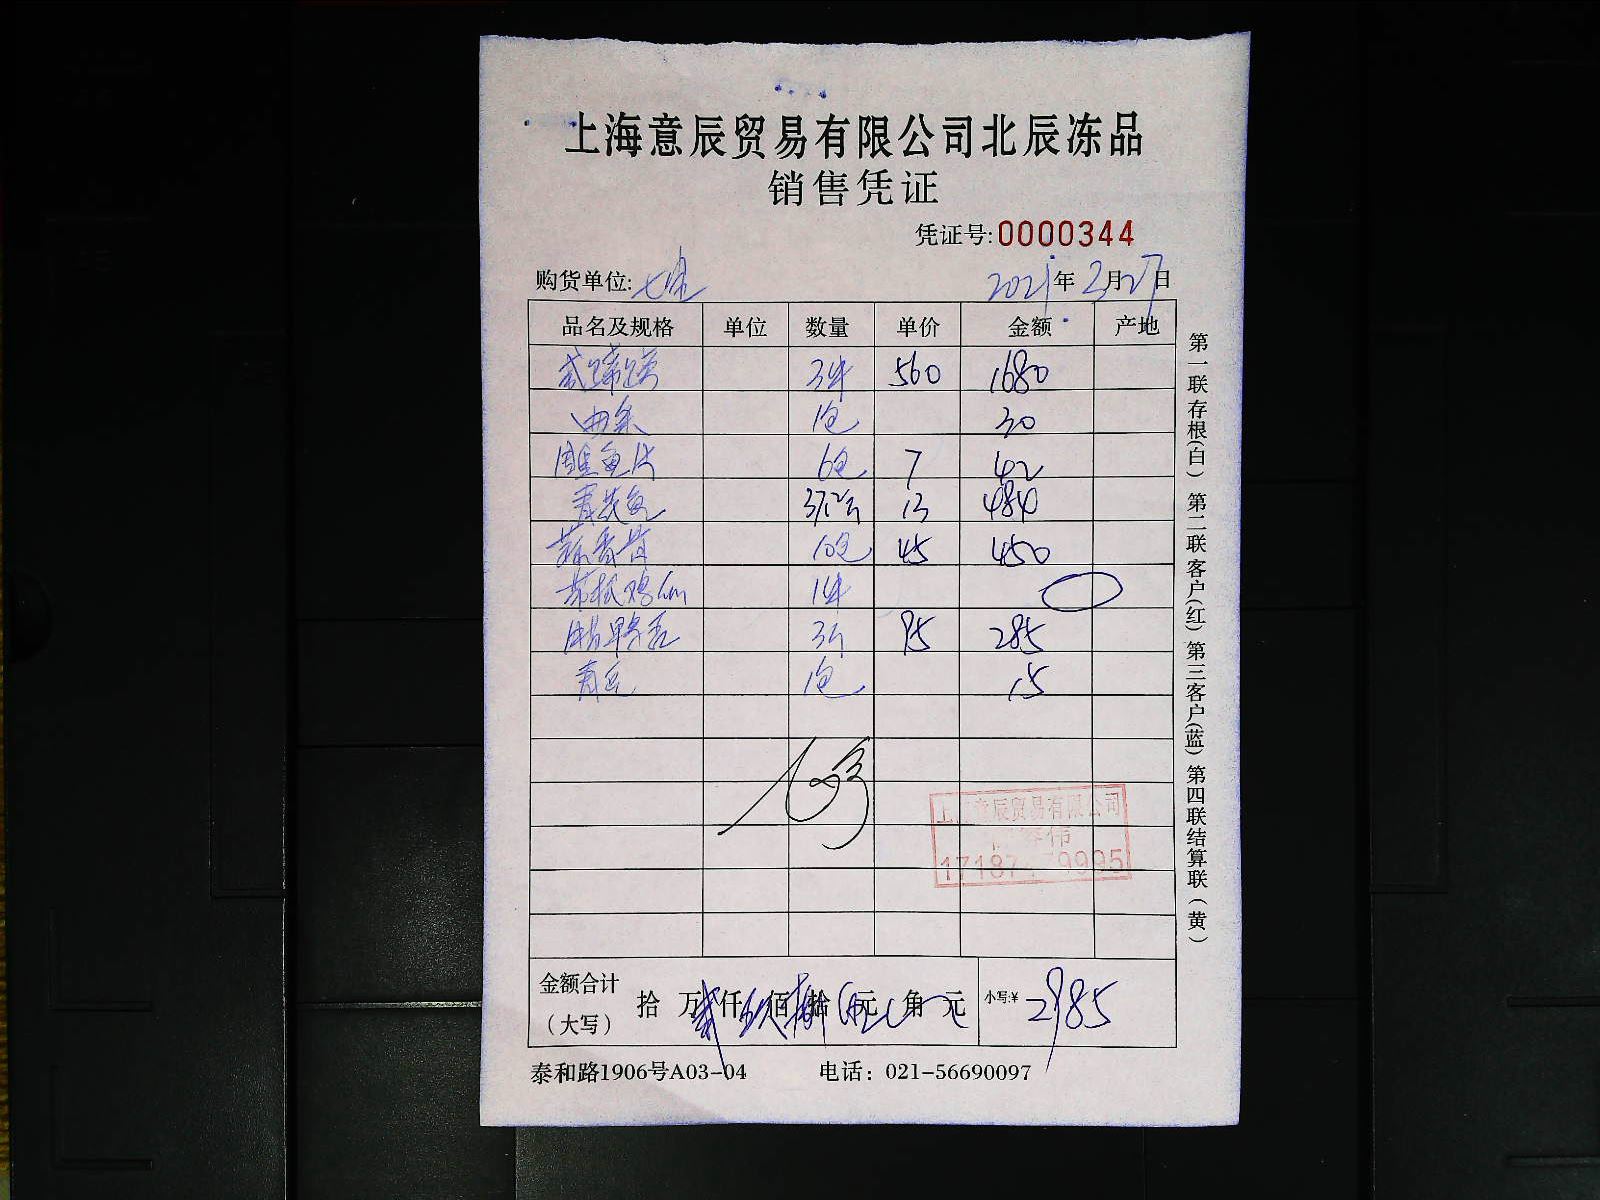 上海意辰贸易有限公司北辰冻品
销售凭证
凭证号:0000344
购货单位:七
2021年2月27日
品名及规格 单位 数量 单价 金额 产地
3件 560 1680
1包 30
鱼片 6包 7 42
37.2斤 13 484
蒜香骨 10包 45 450
1件
鸭舌 3斤 95 285
青豆 1包 15
上 意辰贸易有限公司
伟
17187 9995
金额合计
(大写)
拾 万 仟 佰 拾 元 角 元
小写:¥ 2985
泰和路1906号A03-04 电话: 021-56690097
第一联存根(白) 第二联客户(红) 第三客户(蓝) 第四联结算联(黄)